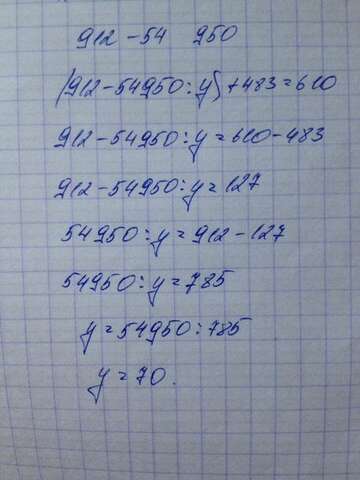 912-54 950
(912-54950:y)+483=610
912-54950:y=610-483
912-54950:y=127
54950:y=912-127
54950:y=785
y=54950:785
y=70.